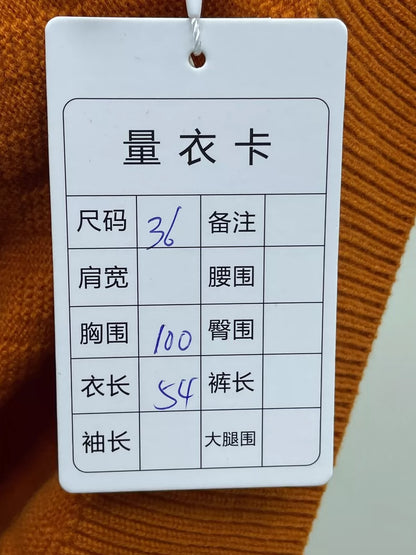 量衣卡
尺码 36 备注
肩宽 腰围
胸围 100 臀围
衣长 54 裤长
袖长 大腿围